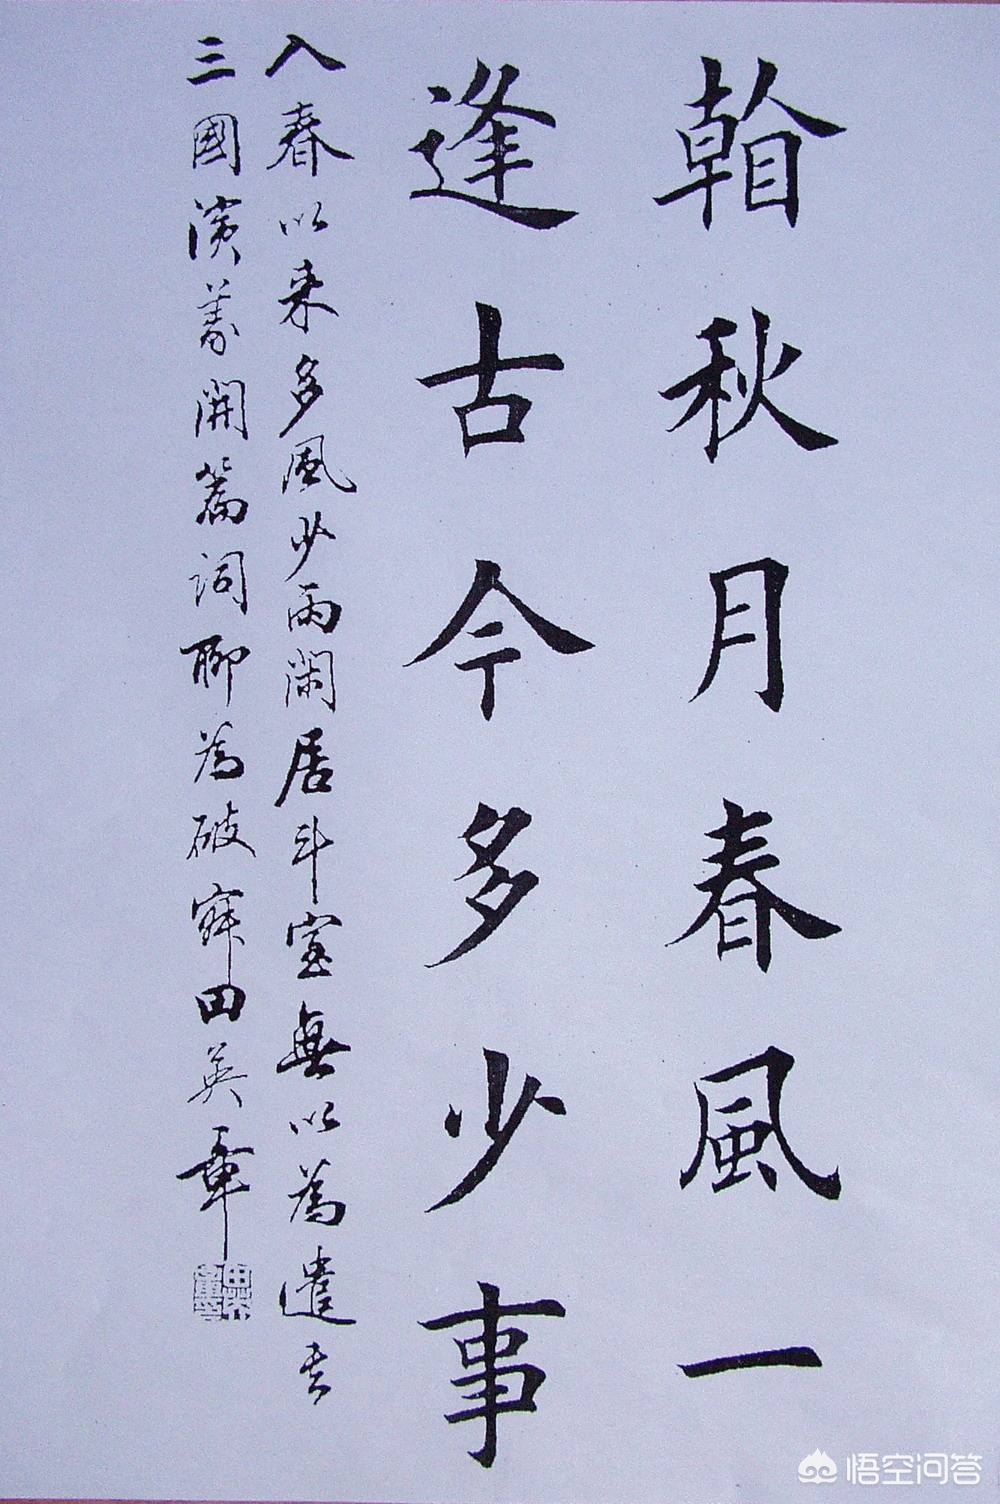 看秋月春風一
逢古今多少事
入春以来多風少雨閑居斗室無以為遣書
三國演義開篇詞聊為破寂田英章
田英章印
悟空问答